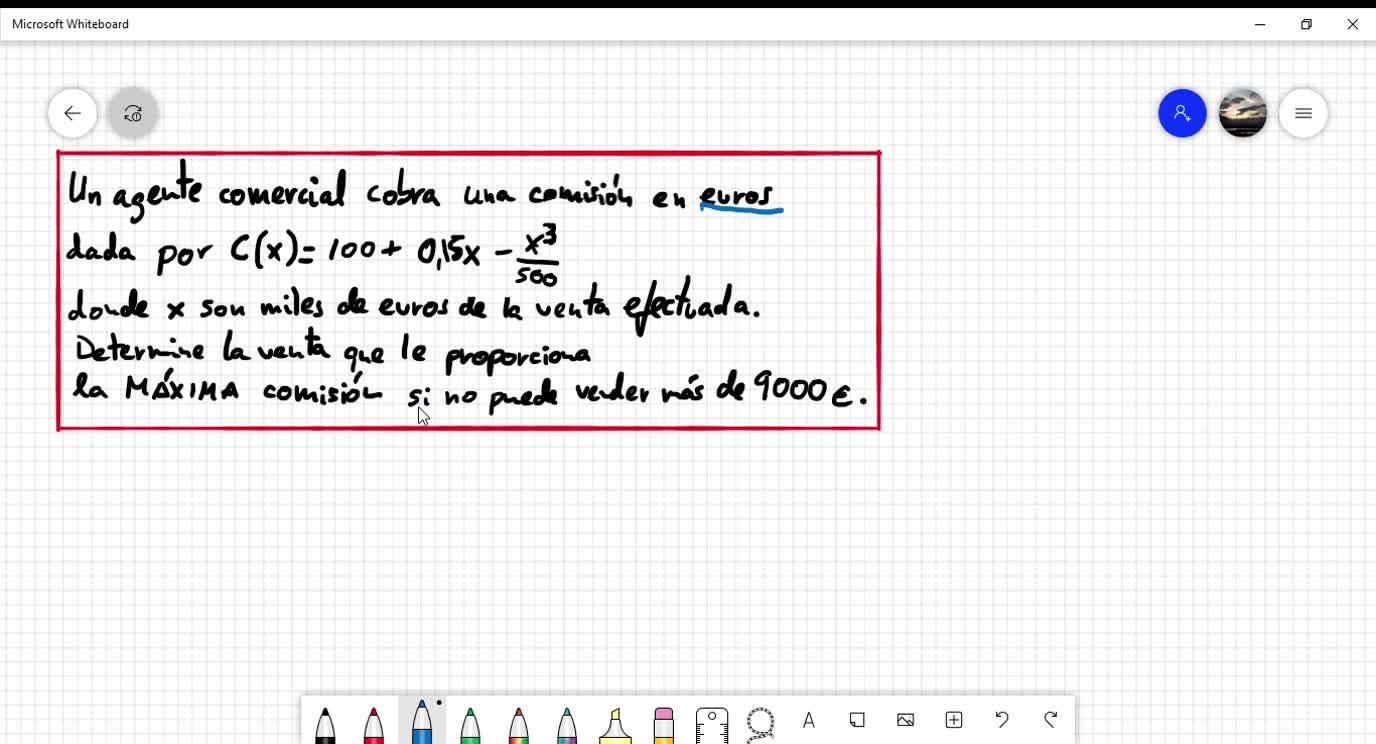 Microsoft Whiteboard
Un agente comercial cobra una comisión en euros
dada por C(x) = 100 + 0,15x - x³/500
donde x son miles de euros de la venta efectuada.
Determine la venta que le proporciona
la MÁXIMA comisión si no puede vender más de 9000 €.
A